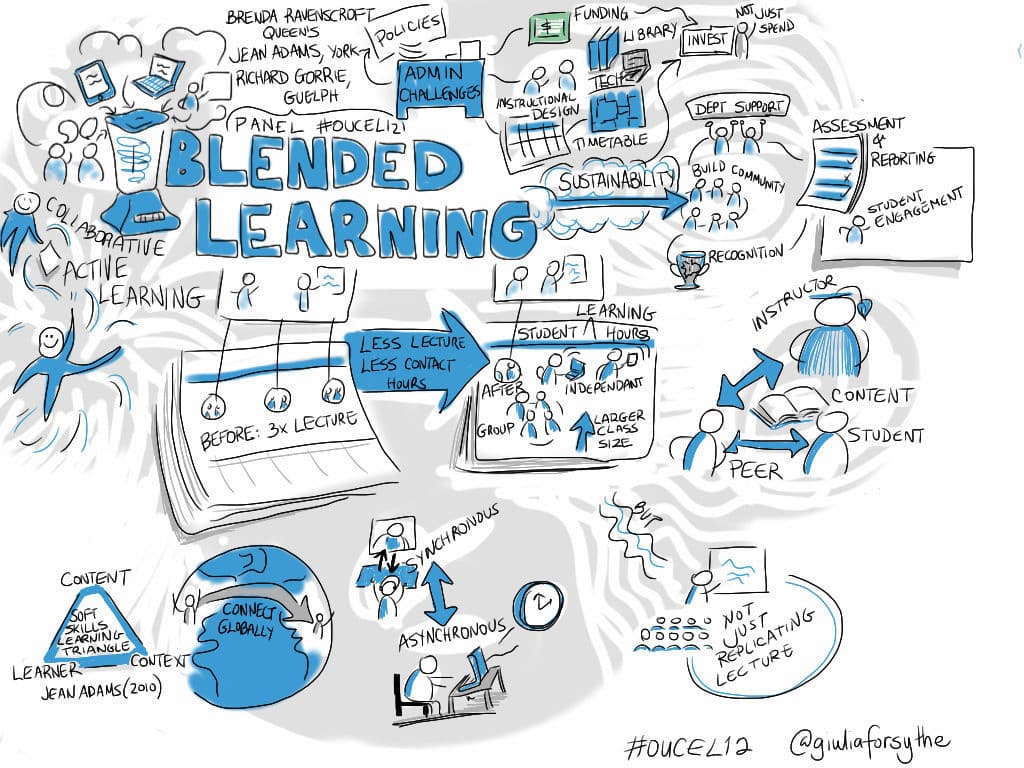 BRENDA RAVENSCROFT
QUEEN'S
JEAN ADAMS, YORK
RICHARD GORRIE,
GUELPH
PANEL #OUCEL121
BLENDED
LEARNING
POLICIES
ADMIN
CHALLENGES
FUNDING
LIBRARY
TECH
INSTRUCTIONAL
DESIGN
TIMETABLE
INVEST
NOT JUST
SPEND
SUSTAINABILITY
DEPT SUPPORT
BUILD COMMUNITY
RECOGNITION
ASSESSMENT
&
REPORTING
STUDENT
ENGAGEMENT
COLLABORATIVE
ACTIVE
LEARNING
BEFORE: 3X LECTURE
LESS LECTURE
LESS CONTACT
HOURS
LEARNING
STUDENT HOURS
AFTER
INDEPENDANT
GROUP
LARGER
CLASS
SIZE
INSTRUCTOR
CONTENT
STUDENT
PEER
CONTENT
SOFT
SKILLS
LEARNING
TRIANGLE
LEARNER
CONTEXT
JEAN ADAMS (2010)
CONNECT
GLOBALLY
SYNCHRONOUS
ASYNCHRONOUS
BUT
NOT
JUST
REPLICATING
LECTURE
#OUCEL12 @giuliaforsythe